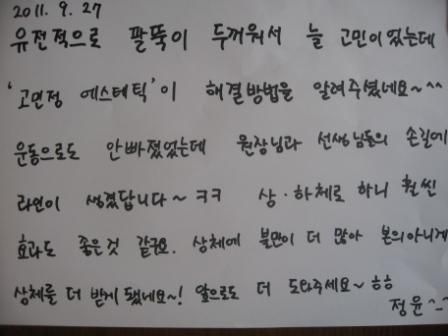 2011. 9. 27
유전적으로 팔뚝이 두꺼워서 늘 고민이 있는데
'고면정 에스테틱'이 해결방법을 알려주셨네요~^^
운동으로도 안빠졌었는데 원장님과 선생님들의 손길에
라인이 생겼답니다~ ㅋㅋ 상·하체로 하니 훨씬
효과도 좋은것 같구요. 상체에 불만이 더 많아 본의아니게
상체를 더 받게 됐네요~! 앞으로도 더 도와주세요~ ㅎㅎ
정윤^-^